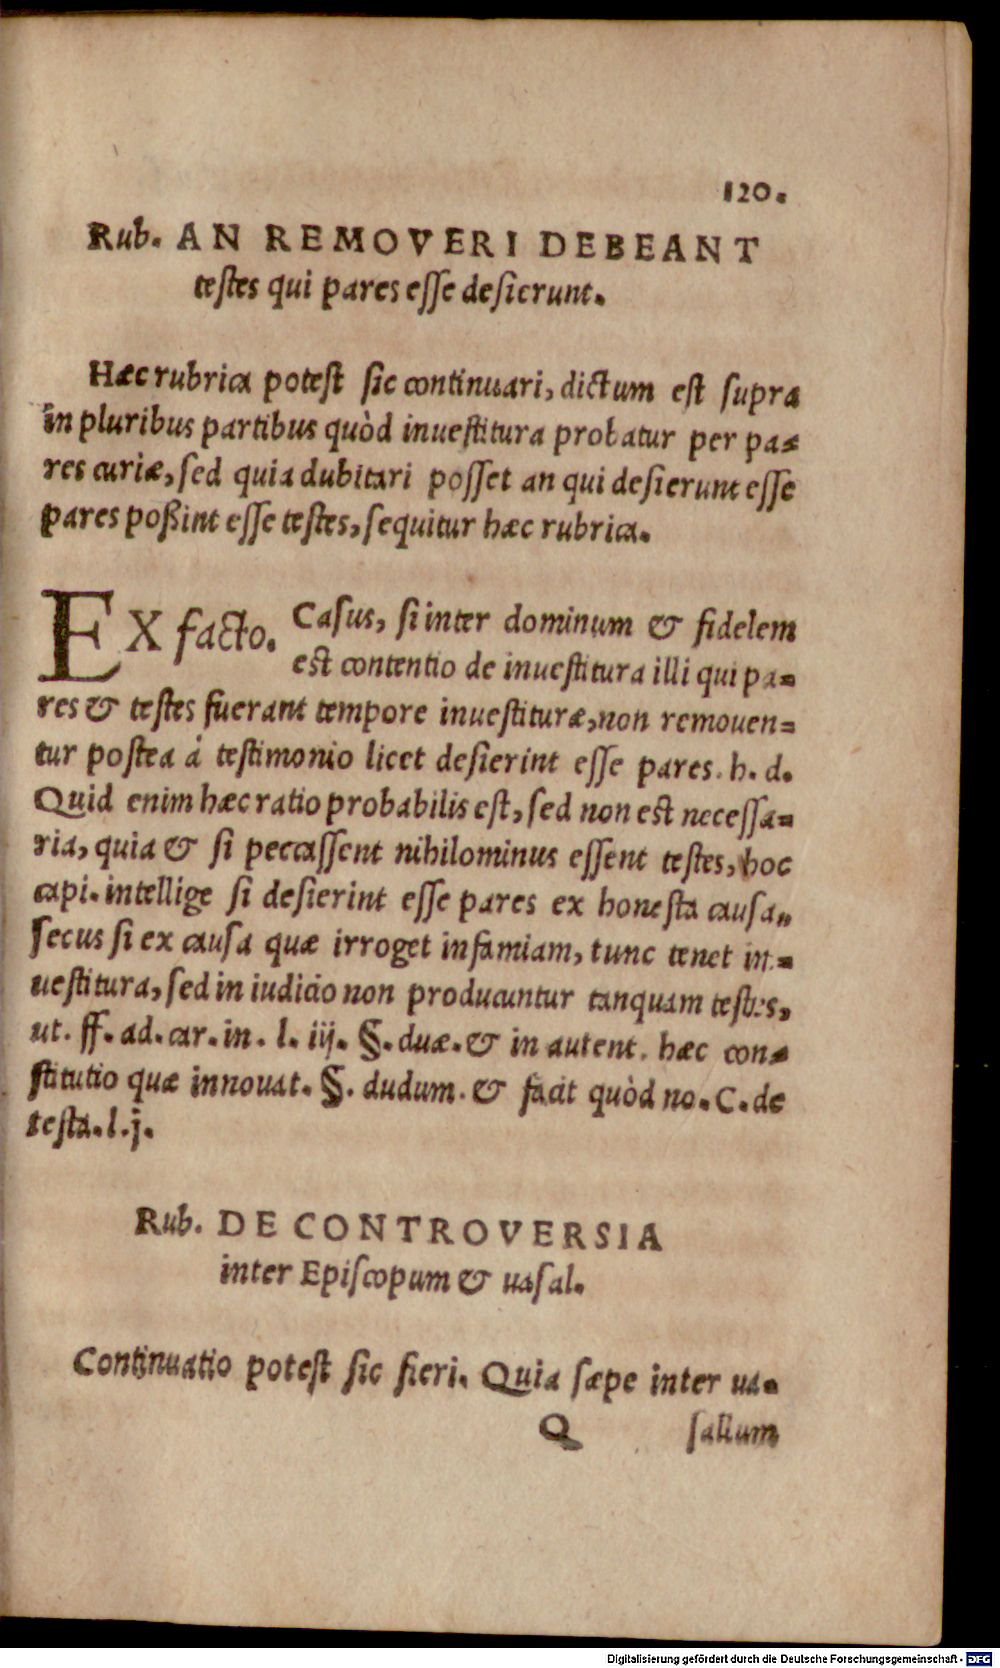 120.
Rub. AN REMOVERI DEBEANT
testes qui pares esse desierunt.
Hæc rubrica potest sic continuari, dictum est supra
in pluribus partibus quòd inuestitura probatur per pa-
res curiæ, sed quia dubitari posset an qui desierunt esse
pares poßint esse testes, sequitur hæc rubrica.
EX facto. Casus, si inter dominum & fidelem
est contentio de inuestitura illi qui pa-
res & testes fuerant tempore inuestituræ, non remouen-
tur postea à testimonio licet desierint esse pares. h. d.
Quid enim hæc ratio probabilis est, sed non est necessa-
ria, quia & si peccassent nihilominus essent testes, hoc
capi. intellige si desierint esse pares ex honesta causa,
secus si ex causa quæ irroget infamiam, tunc tenet in-
uestitura, sed in iudicio non producuntur tanquam testes,
ut. ff. ad. car. in. l. iij. §. duæ. & in autent. hæc con-
stitutio quæ innouat. §. dudum. & facit quòd no. C. de
testa. l. j.
Rub. DE CONTROVERSIA
inter Episcopum & uasal.
Continuatio potest sic fieri. Quia sæpe inter ua-
Q sallum
Digitalisierung gefördert durch die Deutsche Forschungsgemeinschaft - DFG